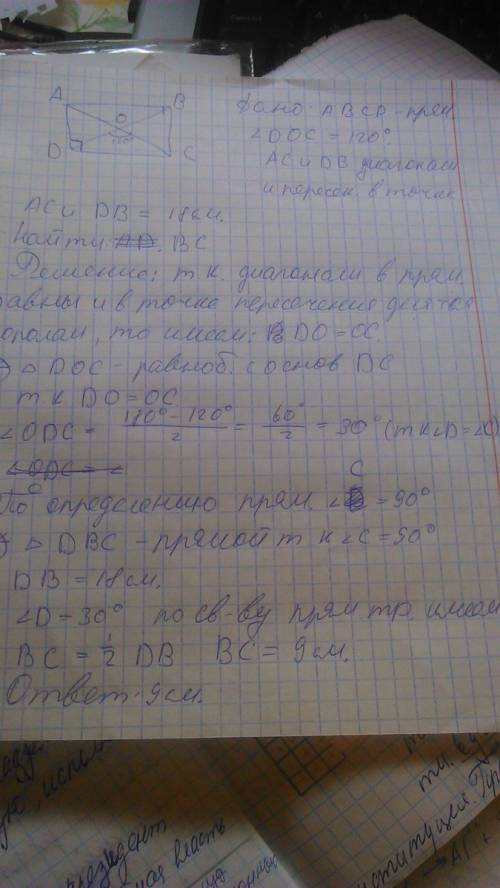 A B
O
120°
D C
Дано: ABCD - прям.
∠DOC = 120°.
AC и DB диагонали
и пересек. в точке
AC и DB = 18 см.
Найти: AD. BC
Решение: т.к. диагонали в прям.
равны и в точке пересечения делятся
пополам, то имеем: DO = OC.
△ DOC - равноб. с основ DC
т к DO = OC
∠ODC = 180° - 120° / 2 = 60° / 2 = 30° (т к ∠D = ∠C)
∠ODC = ∠
C
По определению прям. ∠ = 90°
△ DBC - прямой т к ∠C = 90°
DB = 18 см.
∠D - 30° по св-ву прям тр. имеем
BC = 1/2 DB BC = 9 см.
Ответ - 9 см.
президент
власть